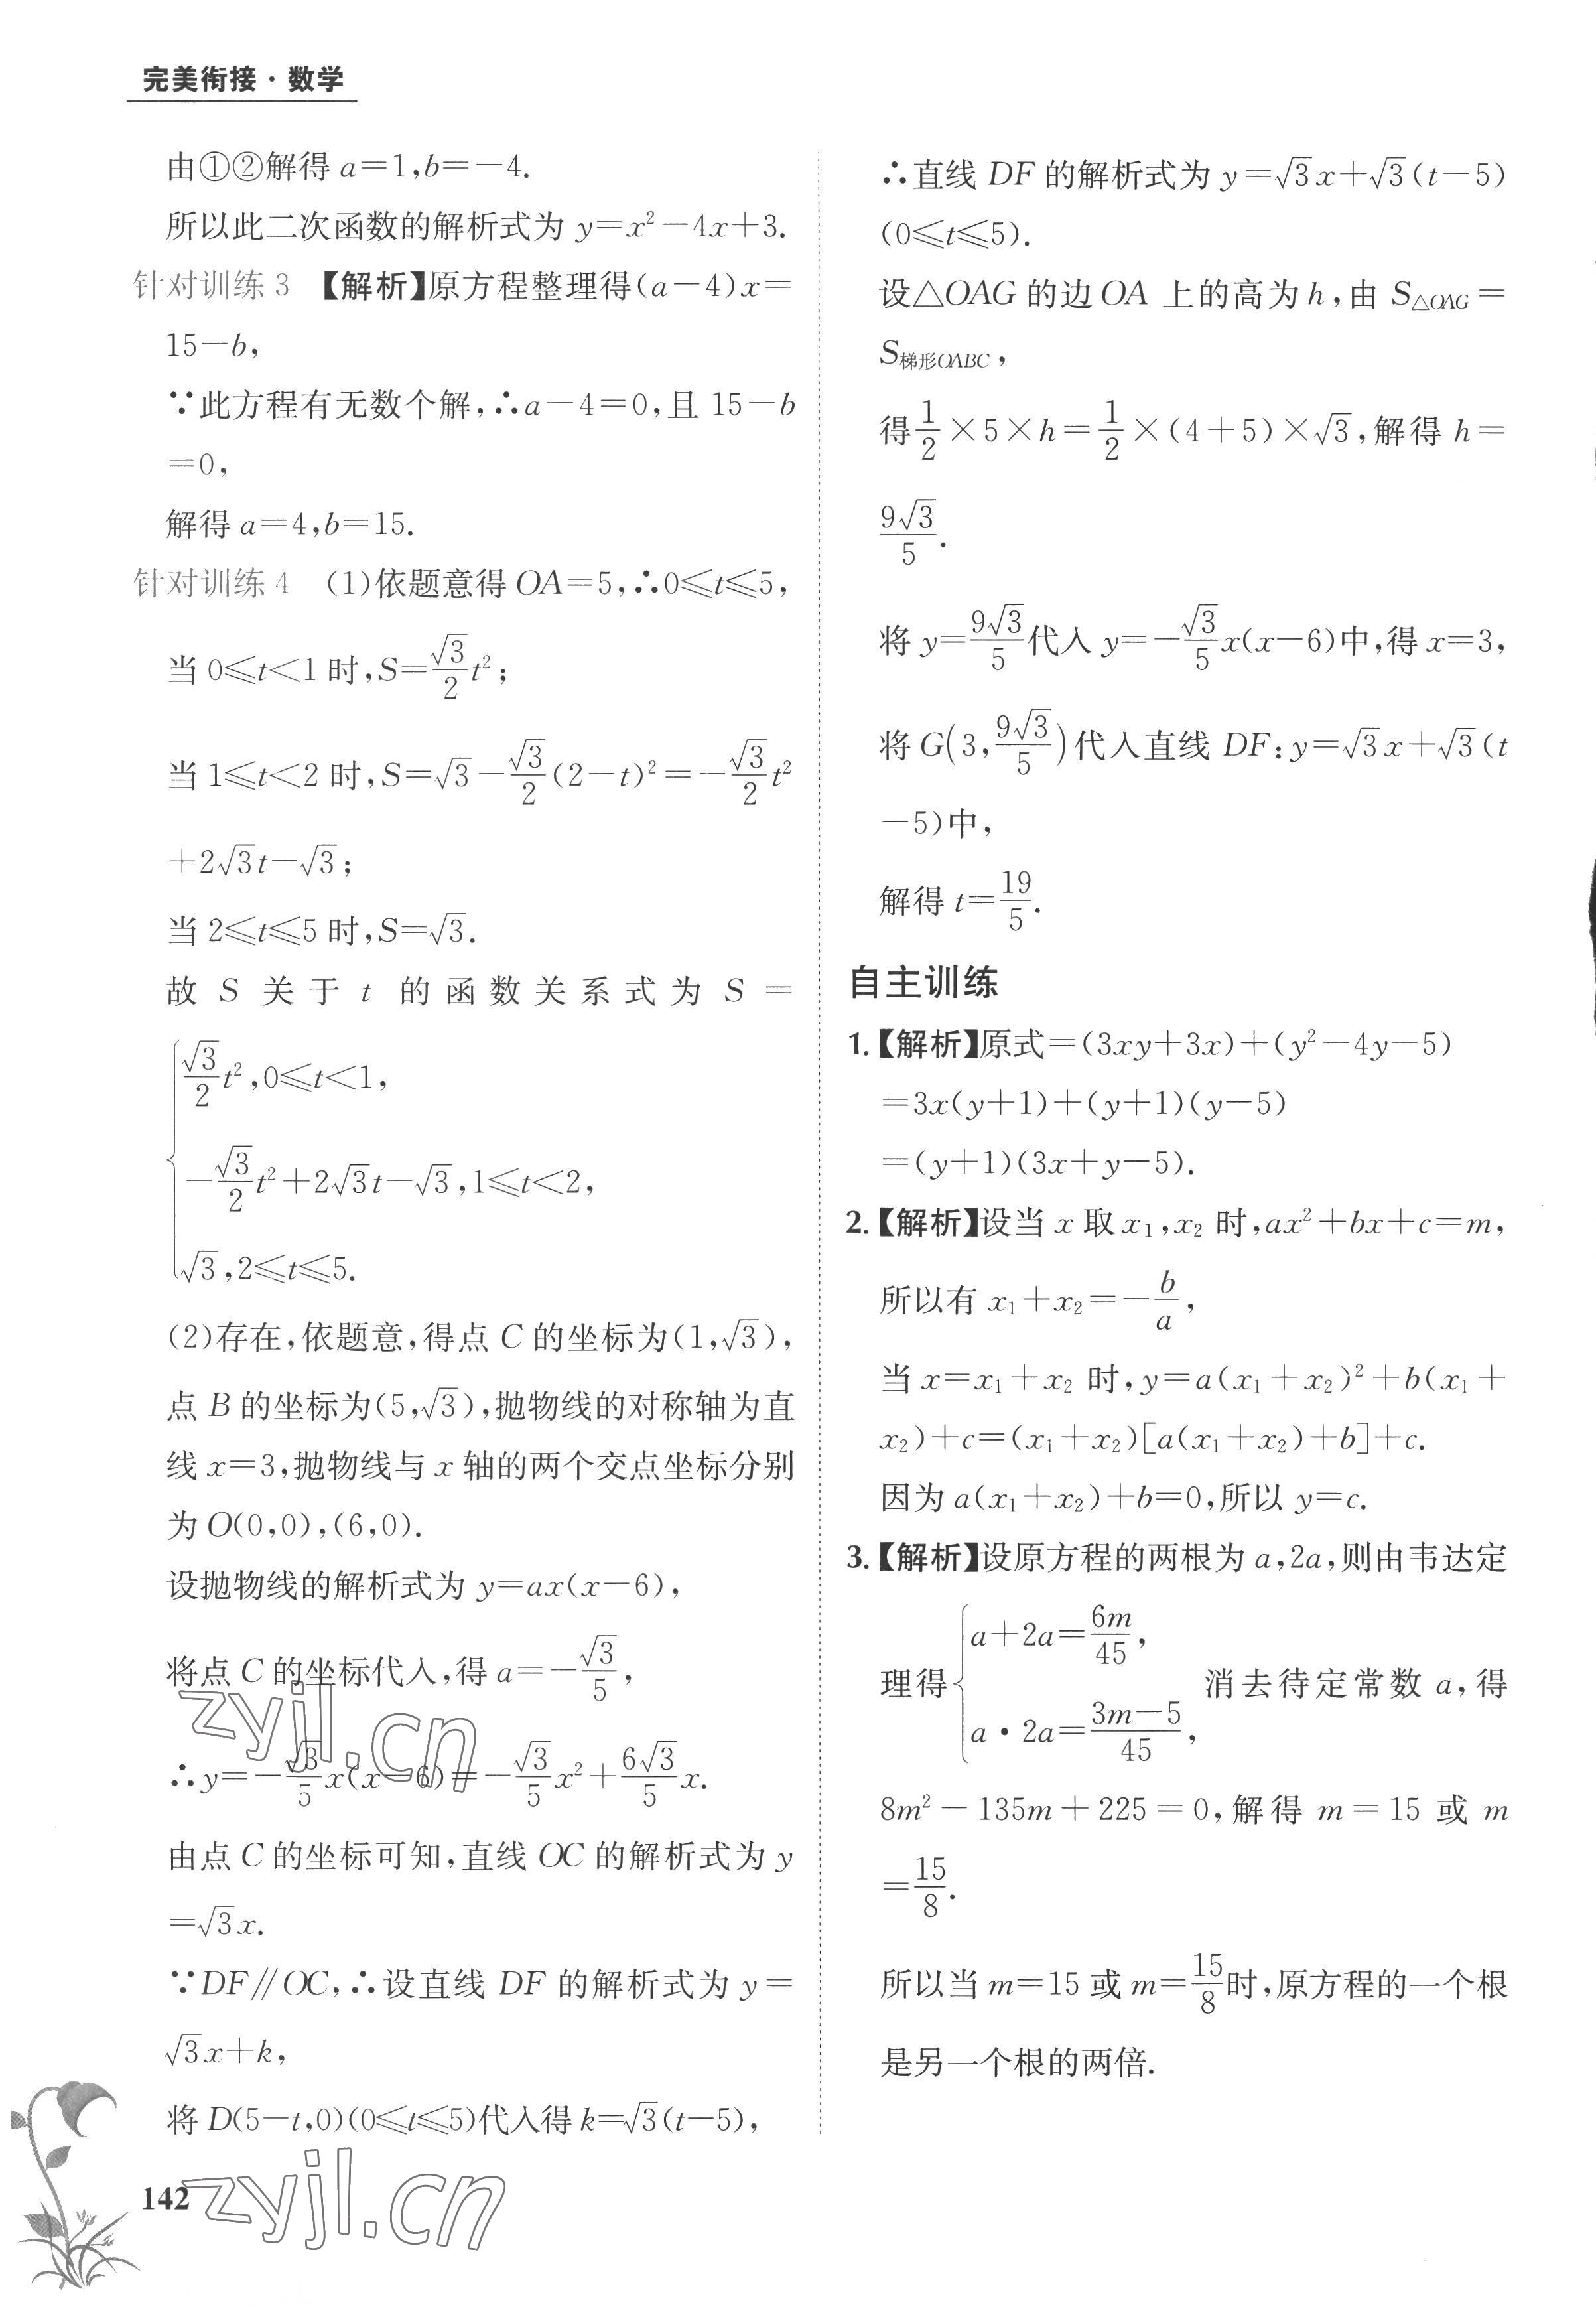 完美衔接·数学
由①②解得 a=1,b=-4.
所以此二次函数的解析式为 y=x²-4x+3.
针对训练 3 【解析】原方程整理得(a-4)x=
15-b,
∵此方程有无数个解,∴a-4=0,且 15-b
=0,
解得 a=4,b=15.
针对训练 4 (1)依题意得 OA=5,∴0⩽t⩽5,
当 0⩽t<1 时,S=√3/2 t²;
当 1⩽t<2 时,S=√3-√3/2(2-t)²=-√3/2 t²
+2√3t-√3;
当 2⩽t⩽5 时,S=√3.
故 S 关于 t 的函数关系式为 S=
{√3/2 t²,0⩽t<1,
-√3/2 t²+2√3t-√3,1⩽t<2,
√3,2⩽t⩽5.
(2)存在,依题意,得点 C 的坐标为(1,√3),
点 B 的坐标为(5,√3),抛物线的对称轴为直
线 x=3,抛物线与 x 轴的两个交点坐标分别
为 O(0,0),(6,0).
设抛物线的解析式为 y=ax(x-6),
将点 C 的坐标代入,得 a=-√3/5,
∴y=-√3/5 x(x-6)=-√3/5 x²+6√3/5 x.
由点 C 的坐标可知,直线 OC 的解析式为 y
=√3x.
∵DF∥OC,∴设直线 DF 的解析式为 y=
√3x+k,
将 D(5-t,0)(0⩽t⩽5)代入得 k=√3(t-5),
∴直线 DF 的解析式为 y=√3x+√3(t-5)
(0⩽t⩽5).
设△OAG 的边 OA 上的高为 h,由 S△OAG=
S梯形OABC,
得1/2×5×h=1/2×(4+5)×√3,解得 h=
9√3/5.
将 y=9√3/5代入 y=-√3/5 x(x-6)中,得 x=3,
将 G(3,9√3/5)代入直线 DF:y=√3x+√3(t
-5)中,
解得 t=19/5.
自主训练
1.【解析】原式=(3xy+3x)+(y²-4y-5)
=3x(y+1)+(y+1)(y-5)
=(y+1)(3x+y-5).
2.【解析】设当 x 取 x₁,x₂ 时,ax²+bx+c=m,
所以有 x₁+x₂=-b/a,
当 x=x₁+x₂ 时,y=a(x₁+x₂)²+b(x₁+
x₂)+c=(x₁+x₂)[a(x₁+x₂)+b]+c.
因为 a(x₁+x₂)+b=0,所以 y=c.
3.【解析】设原方程的两根为 a,2a,则由韦达定
理得{a+2a=6m/45, a·2a=(3m-5)/45, 消去待定常数 a,得
8m²-135m+225=0,解得 m=15 或 m
=15/8.
所以当 m=15 或 m=15/8时,原方程的一个根
是另一个根的两倍.
zyjl.cn
zyjl.cn
142